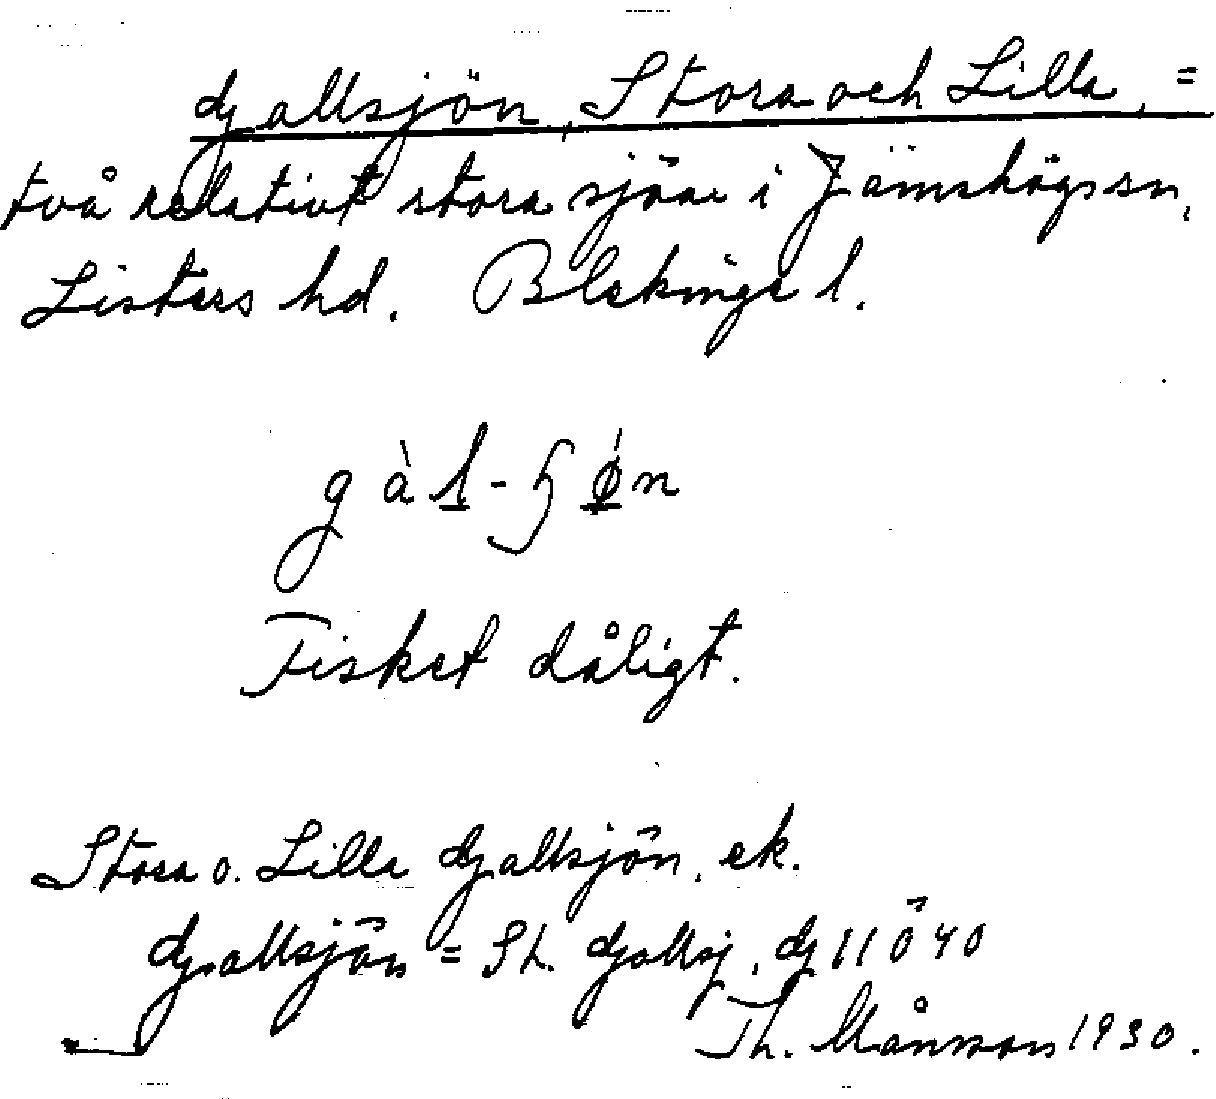 Gallsjön, Stora och Lilla, =
två relativt stora sjöar i Jämshögs sn,
Listers hd. Blekinge l.
Fisket dåligt.
Stora o. Lilla Gallsjön, ek.
Gallsjön = St. Gallsj, G 11 Ö 40
Th. Månsson 1930.